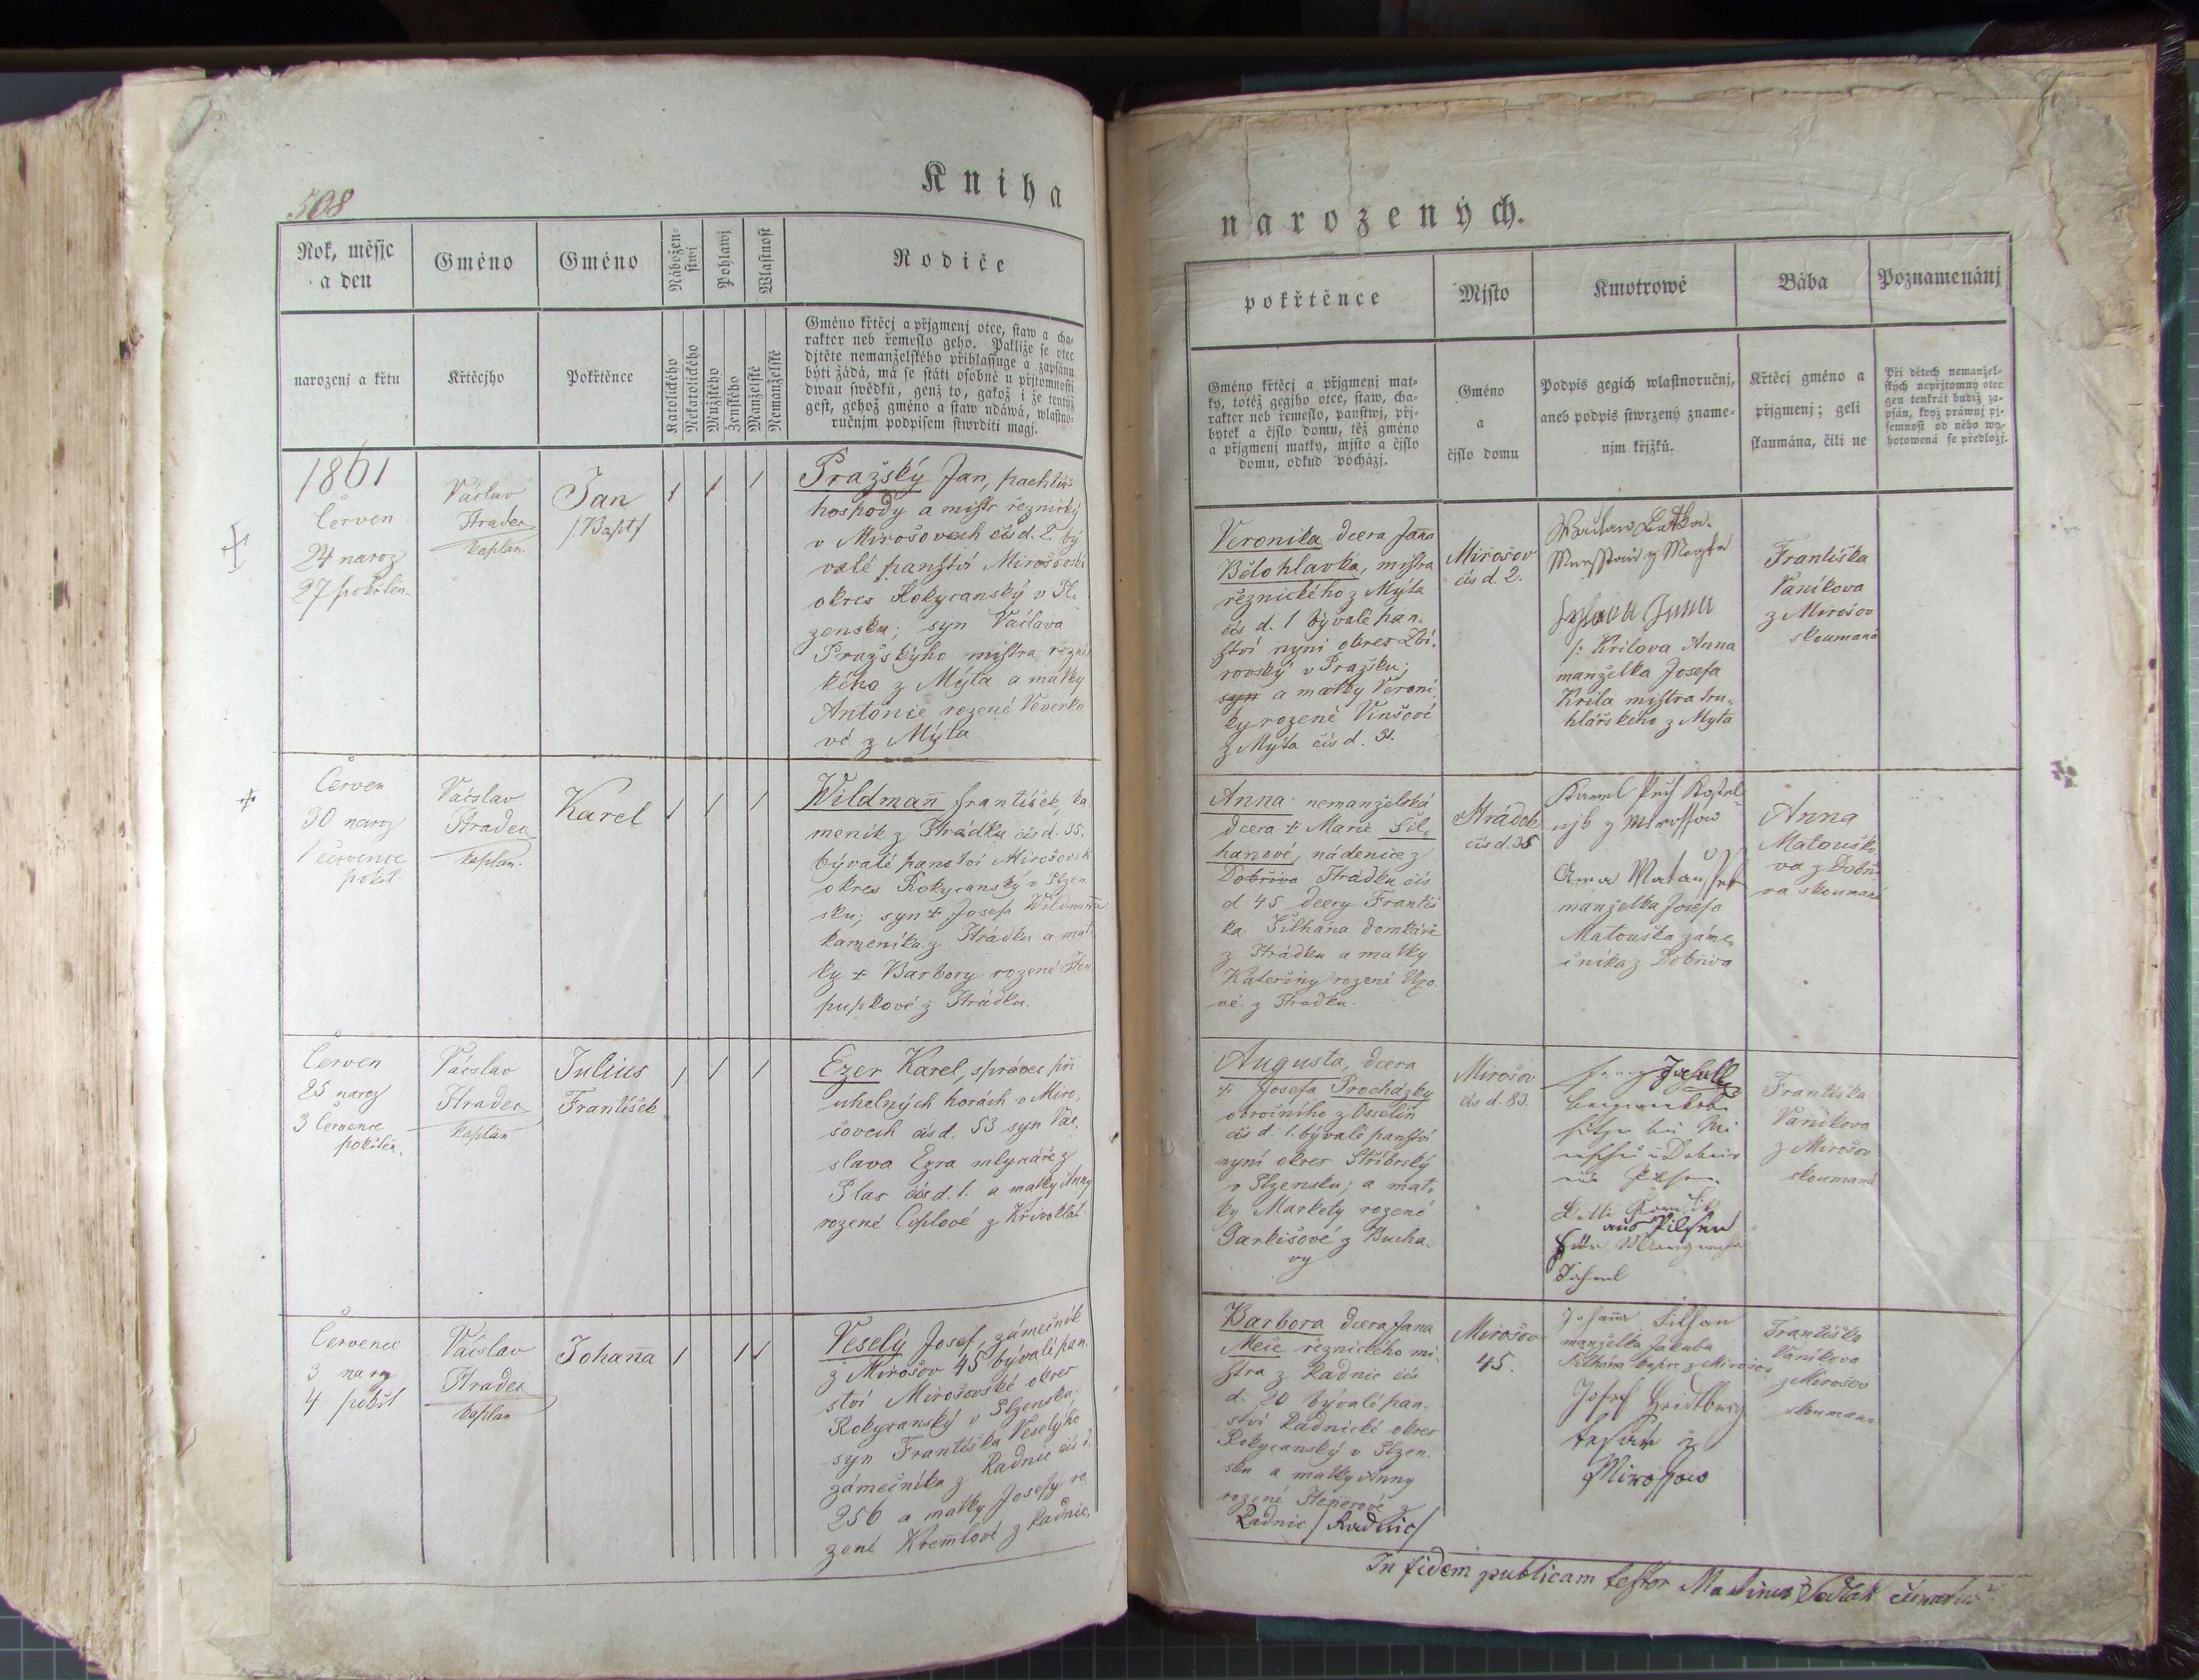 508
Kniha
Rok, měsjc
a den
Gméno
Gméno
Nábožen-
stwj
Pohlawj
Wlastnost
Rodiče
narozenj a křtu
Křtěcjho
Pokřtěnce
Katolického
Nekatolického
Mužského
Ženského
Manželské
Nemanželské
Gméno křtěcj a přjgmenj otce, staw a cha-
rakter neb řemeslo geho. Pakliže se otec
djtěte nemanželského přihlassuge a zapsánu
býti žádá, má se státi osobně u přjtomnosti
dwau swědků, genž to, gakož i že tentýž
gest, gehož gméno a staw udáwá, wlastno-
ručnjm podpisem stwrditi magj.
1861
Červen
24 naroz
27 pokřtěn.
Václav
Hradec
kaplan.
Jan
/:Bapt:/
Pražský Jan, pachtýř
hospody a mistr řeznický
v Mirošovech čís d. 2. bý
valé panství Mirošovské
okres Rokycanský v Pl.
zensku; syn Václava
Pražskýho mistra řezni
kého z Mýta a matky
Antonie rozené Veverko
vé z Mýta
Červen
30 naroz
1 července
pokřt.
Václav
Hradec
kaplan.
Karel
Wildman̄ František, ka
meník z Hrádku čís d. 35.
bývalé panství Mirošovsk
okres Rokycanský v Plzen
sku; syn + Josefa Wildman̄a
kameníka z Hrádku a mat
ky + Barbory rozené
pupkové z Hrádku.
Červen
25 naroz
3 července
pokřtěn.
Václav
Hradec
kaplan
Julius
František
Ezer Karel, správec při
uhelných horách v Miro,
šovech čís d. 53 syn Vác.
slava Ezra mlynáře z
Plas čís d. 1. a matky Anny
rozené z Křivoklát.
Červenec
3 naroz
4 pokřt
Václav
Hradec
kaplan
Johan̄a
Veselý Josef, zámečník
z Mirošov 45 bývalé pan.
ství Mirošovské okres
Rokycanský v Plzensku.
syn Františka Veselýho
zámečníka z Radnic čís d.
256 a matky Josefy ro
zené z Radnic.
narozených.
pokřtěnce
Mjsto
Kmotrowé
Bába
Poznamenánj
Gméno křtěcj a přjgmenj mat-
ky, totéž gegjho otce, staw, cha-
rakter neb řemeslo, panstwj, přj-
bytek a čjslo domu, též gméno
a přjgmenj matky, mjsto a čjslo
domu, odkud pocházj.
Gméno
a
čjslo domu
Podpis gegich wlastnoručnj,
aneb podpis stwrzený zname-
njm křjžků.
Křtěcj gméno a
přjgmenj; geli
skaumána, čili ne
Při dětech nemanžel-
ských nepřjtomný otec
gen tenkrát budiž za-
psán, když práwnj pj-
semnost od něho wy-
hotowená se předložj.
Veronika dcera Jana
Bělohlavka, mistra
řeznického z Mýta
čís d. 1 bývalé pan.
ství nyní okres Zbi.
rovský v Pražsku;
syn a matky Veroni.
ky rozené Vinšové
z Mýta čís d. 31.
Mirošov
čís d. 2.
/: Krilova Anna
manželka Josefa
Krila mistra tru.
hlářského z Mýta
Františka
Vaníkova
z Mirošov
skoumaná
Anna nemanželská
dcera + Marie Šil,
hanové, nádenice z
Dobřiva Hrádku čís
d 45 dcery Františ
ka Šilhána domkáře
z Hrádku a matky
Kateřiny rozené
vé z Hradku.
Hrádek
čís d. 35
Karel
z Mirossow
Anna
manželka Josefa
Matouška záme,
čníka z Dobřiva
Anna
Matouško
va z Dobři
va skoumaná
Augusta, dcera
+ Josefa Procházky
obročního z Osselín
čís d. 1. bývalé panství
nyní okres Stříbrský
v Plzensku; a mat,
ky Markety rozené
z Bucha.
vy
Mirošov
čís d. 83.
aus Pilsen
für
Františka
Vaníkova
z Mirošov
skoumaná
Barbora dcera Jana
řeznického mi.
stra z Radnic čís
d. 20 bývalé pan.
ství Radnické okres
Rokycanský v Plzen.
sku a matky Anny
rozené z
Radnic /Radnic/
Mirošov
45.
Johan̄a Silhan
manželka Jakuba
Šilhána z Mirošov
Josef
tesař z
Mirossow
Františka
Vaníkova
z Mirošov
skoumaná
In fidem publicam testor Martinus